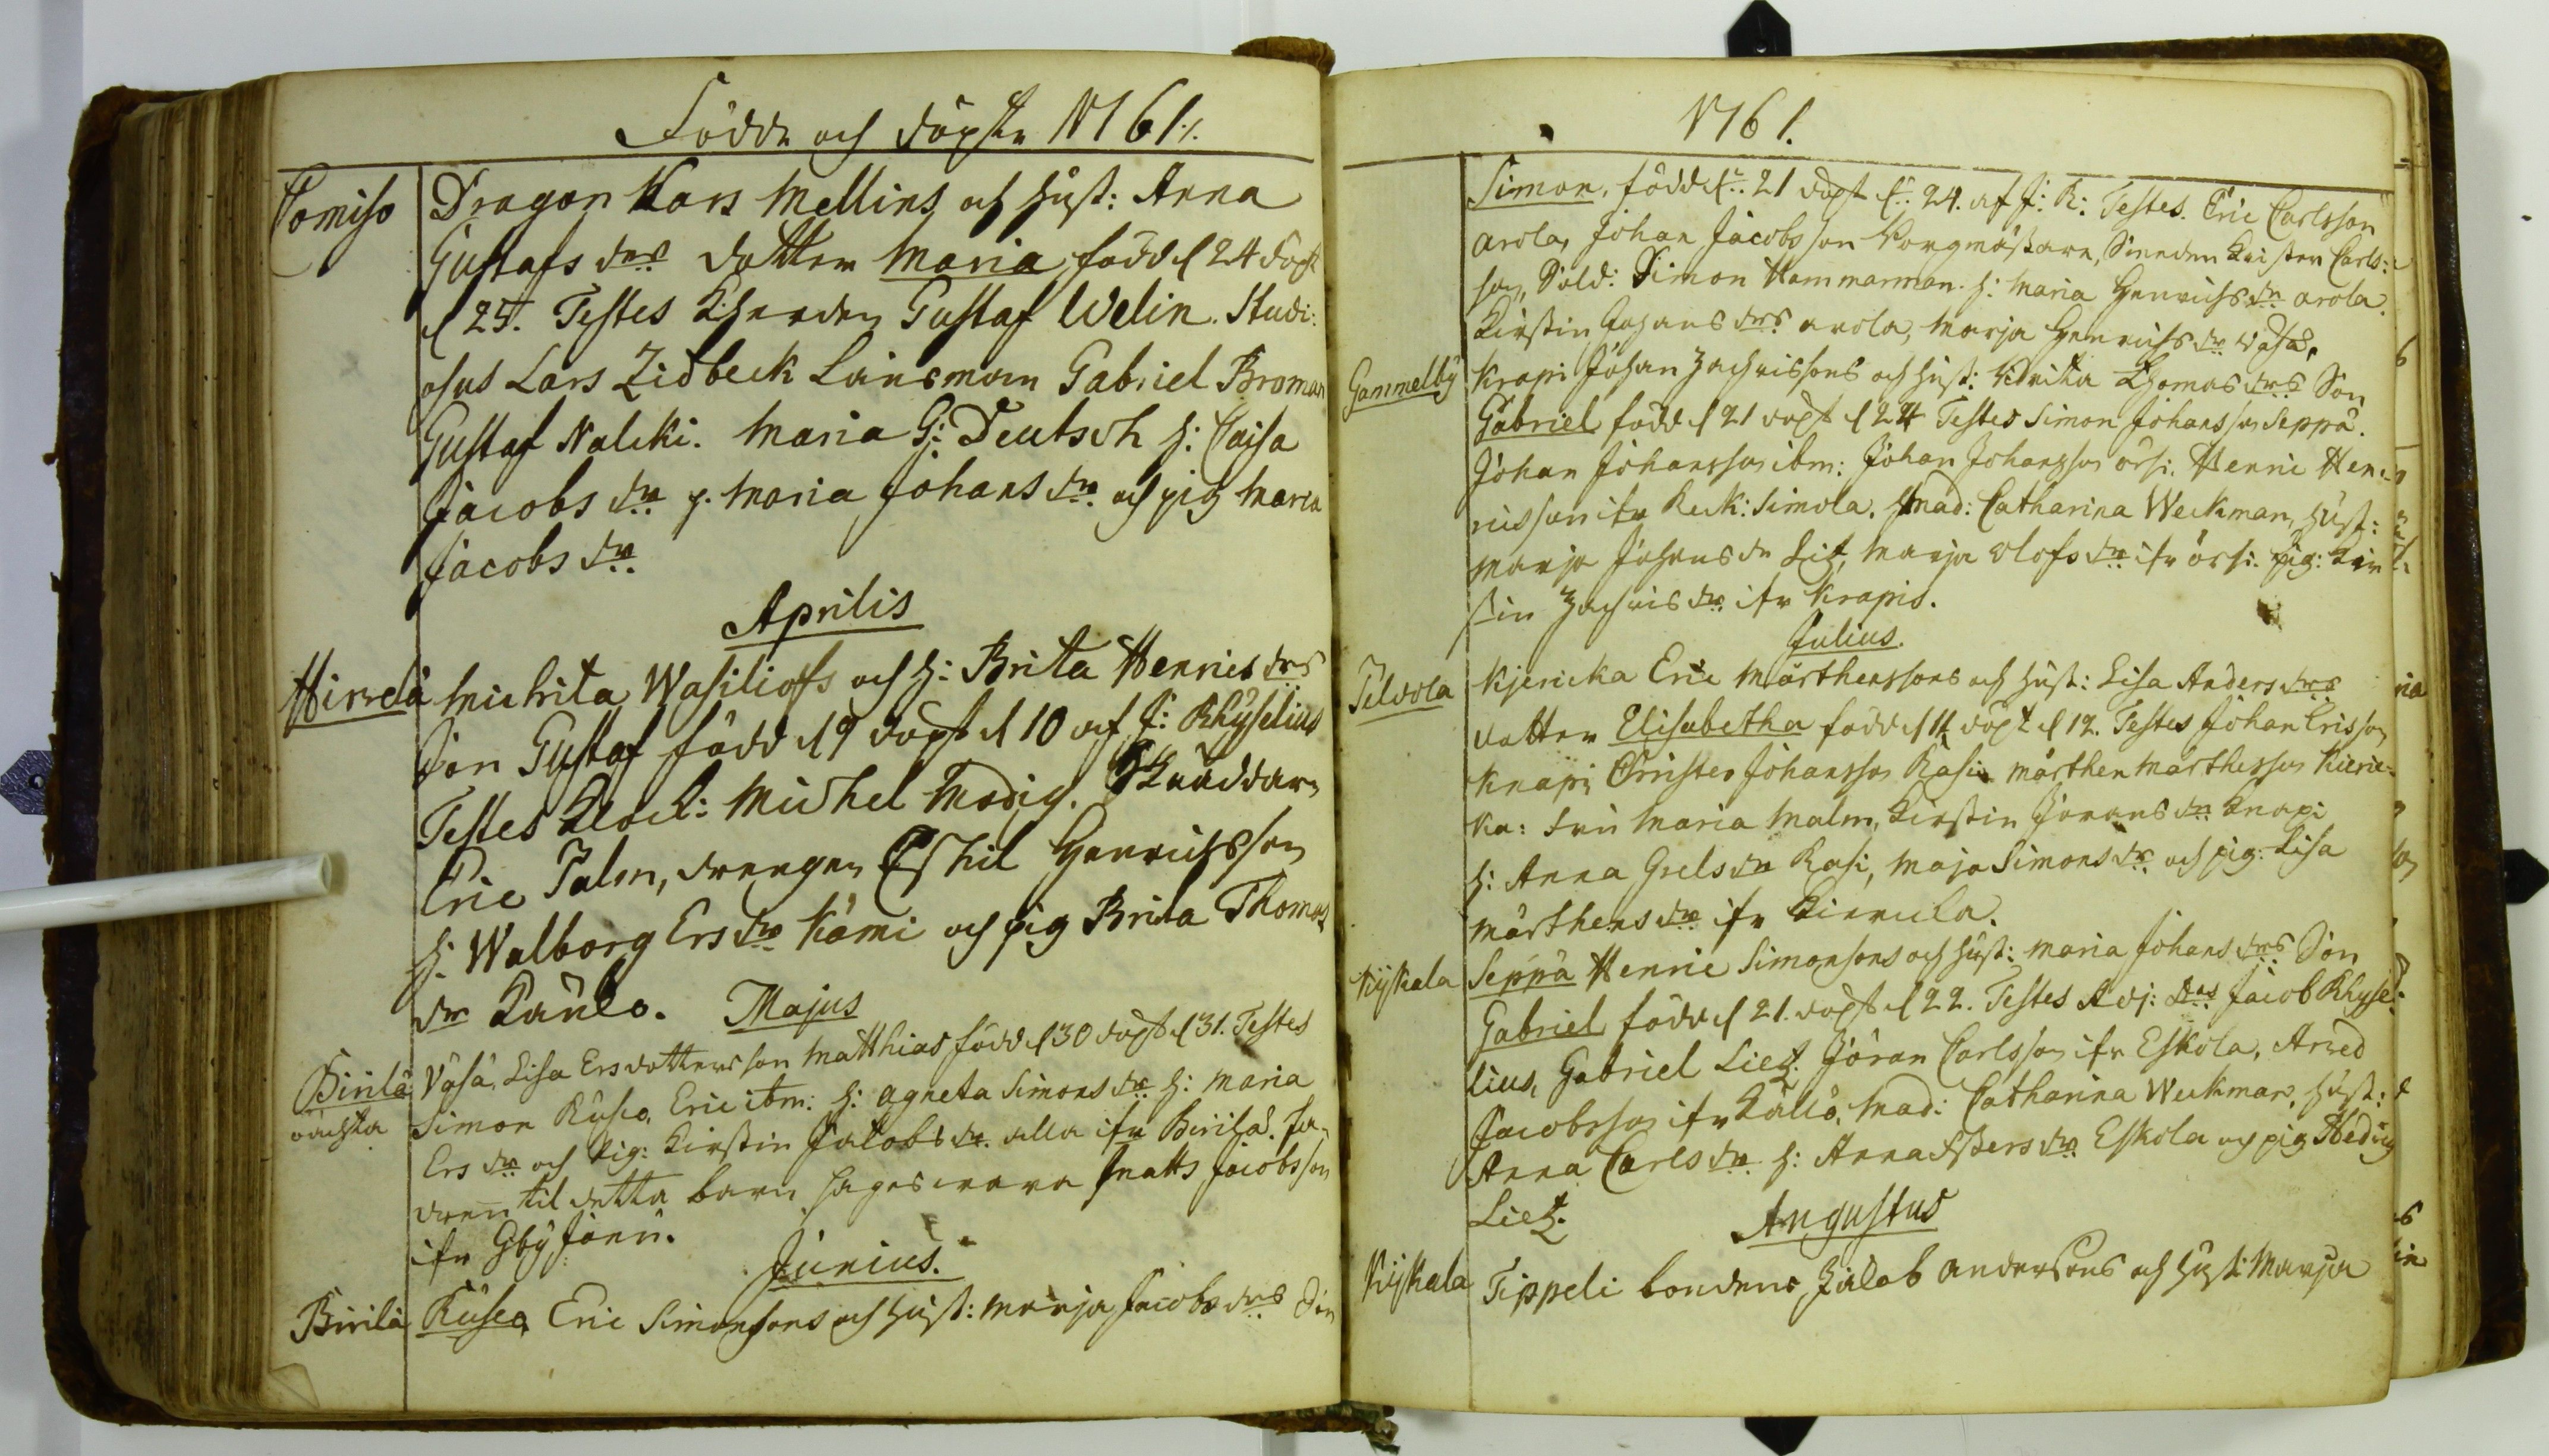 Födde och döpte 1761.
Comiso Dragon Kars Mellins och hust: Anna
Gustafs drs dotter Maria född d 24 döpt
d 25. Testes Gustaf Welin. Studi:
osus Lars Zidbeck Länsman Gabriel Broman
Gustaf Nalcki. Maria G: Deutsch h: Caisa
Jacobs dr p. Maria Johans dr och pig Maria
Jacobs dr
Aprilis
Hirvelä Michita Wasilioffs och h: Brita Henrics drs
Son Gustaf född d 9 döpt d 10 af J: Rhyselius
Testes Klock: Michel Modig. Skräddarn
Eric Palm, drengen Eskil Henrichsson
h. Walborg Ers dr Kämi och pig Brita Thomas
dr Känlo. Majus
Birilä Väsä, Lisa Ersdotters son Matthias född d 30 döpt d 31. Testes
oächta Simon Rusco, Eric ibm: h: Agneta Simons dr h: Maria
Ers dr och pig: Kirstin Jacobs dr alla ifr Birilä. Fa-
dren til detta barn sages vara Matts Jacobsson
ifr Gby Jöeri.
Junius.
Birilä Rusco, Eric Simonsons och hust: Marja Jacobs drs Son
1761.
Simon, född d: 21 döpt d: 24. af J: R: Testes. Eric Carlsson
arola, Johan Jacobsson Borgmästare, Christer Carls:
son, Sold: Simon Hammarman. h: Maria Henrichs dr arola.
Kirstin Johans drs arola, Marja Henrichs dr Väsä.
Gammelby Krapi Johan Zachrissons och hust: Brita Thomas drs Son
Gabriel född d 21 döpt d 24 Testes Simon Johansson Seppä.
Johan Johansson ibm: Johan Johansson örsi. Henric Hen-
ricsson ifr Reck: Simola. Mad: Catharina Weckman, hust:
Marja Johans dr Liz, Marja Olofs dr ifr örsi. pig: Kir
stin Zachris dr ifr Krapis.
Julius.
Teldola Kjericka Eric Mårthenssons och hust: Lisa Anders drs
dotter Elisabetha född d 11 döpt d 12. Testes Johan Ersson
Knapi, Christer Johansson Rasi, Mårthen Mårthesson Kieric-
ka: Maria Malm, Kirstin Jörans dr Knapi
h: Anna Grels dr Rasi, Maja Simons dr och pig: Lisa
Mårthens dr ifr Kirmula.
Kyskala Seppä Henric Simonsons och hust: Maria Johans drs Son
Gabriel född d 21. döpt d 22. Testes Adj: Jacob Rhyse:
lius, Gabriel Lietz. Jöran Carlsson ifr Eskola, Arved
Jacobsson ifr Källö. Mad: Catharina Weckman, hust:
Anna Carls dr h: Anna Essers dr Eskola och pig Hedvig
Lietz.
Augustus
Kyskala Tippeli bondens Jacob andersons och hust: Marja